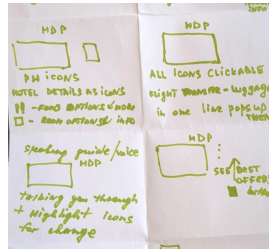 HDP
PH ICONS
HOTEL DETAILS AS ICONS
- FOOD OPTIONS & MORE
- ROOM OPTIONS & INFO
HDP
ALL ICONS CLICKABLE
FLIGHT TRANSFER - LUGGAGE
in one line pops up
THEM
speaking guide/voice
HDP
talking you through
+ Highlight icons
for change
HDP
SEE BEST
OFFERS